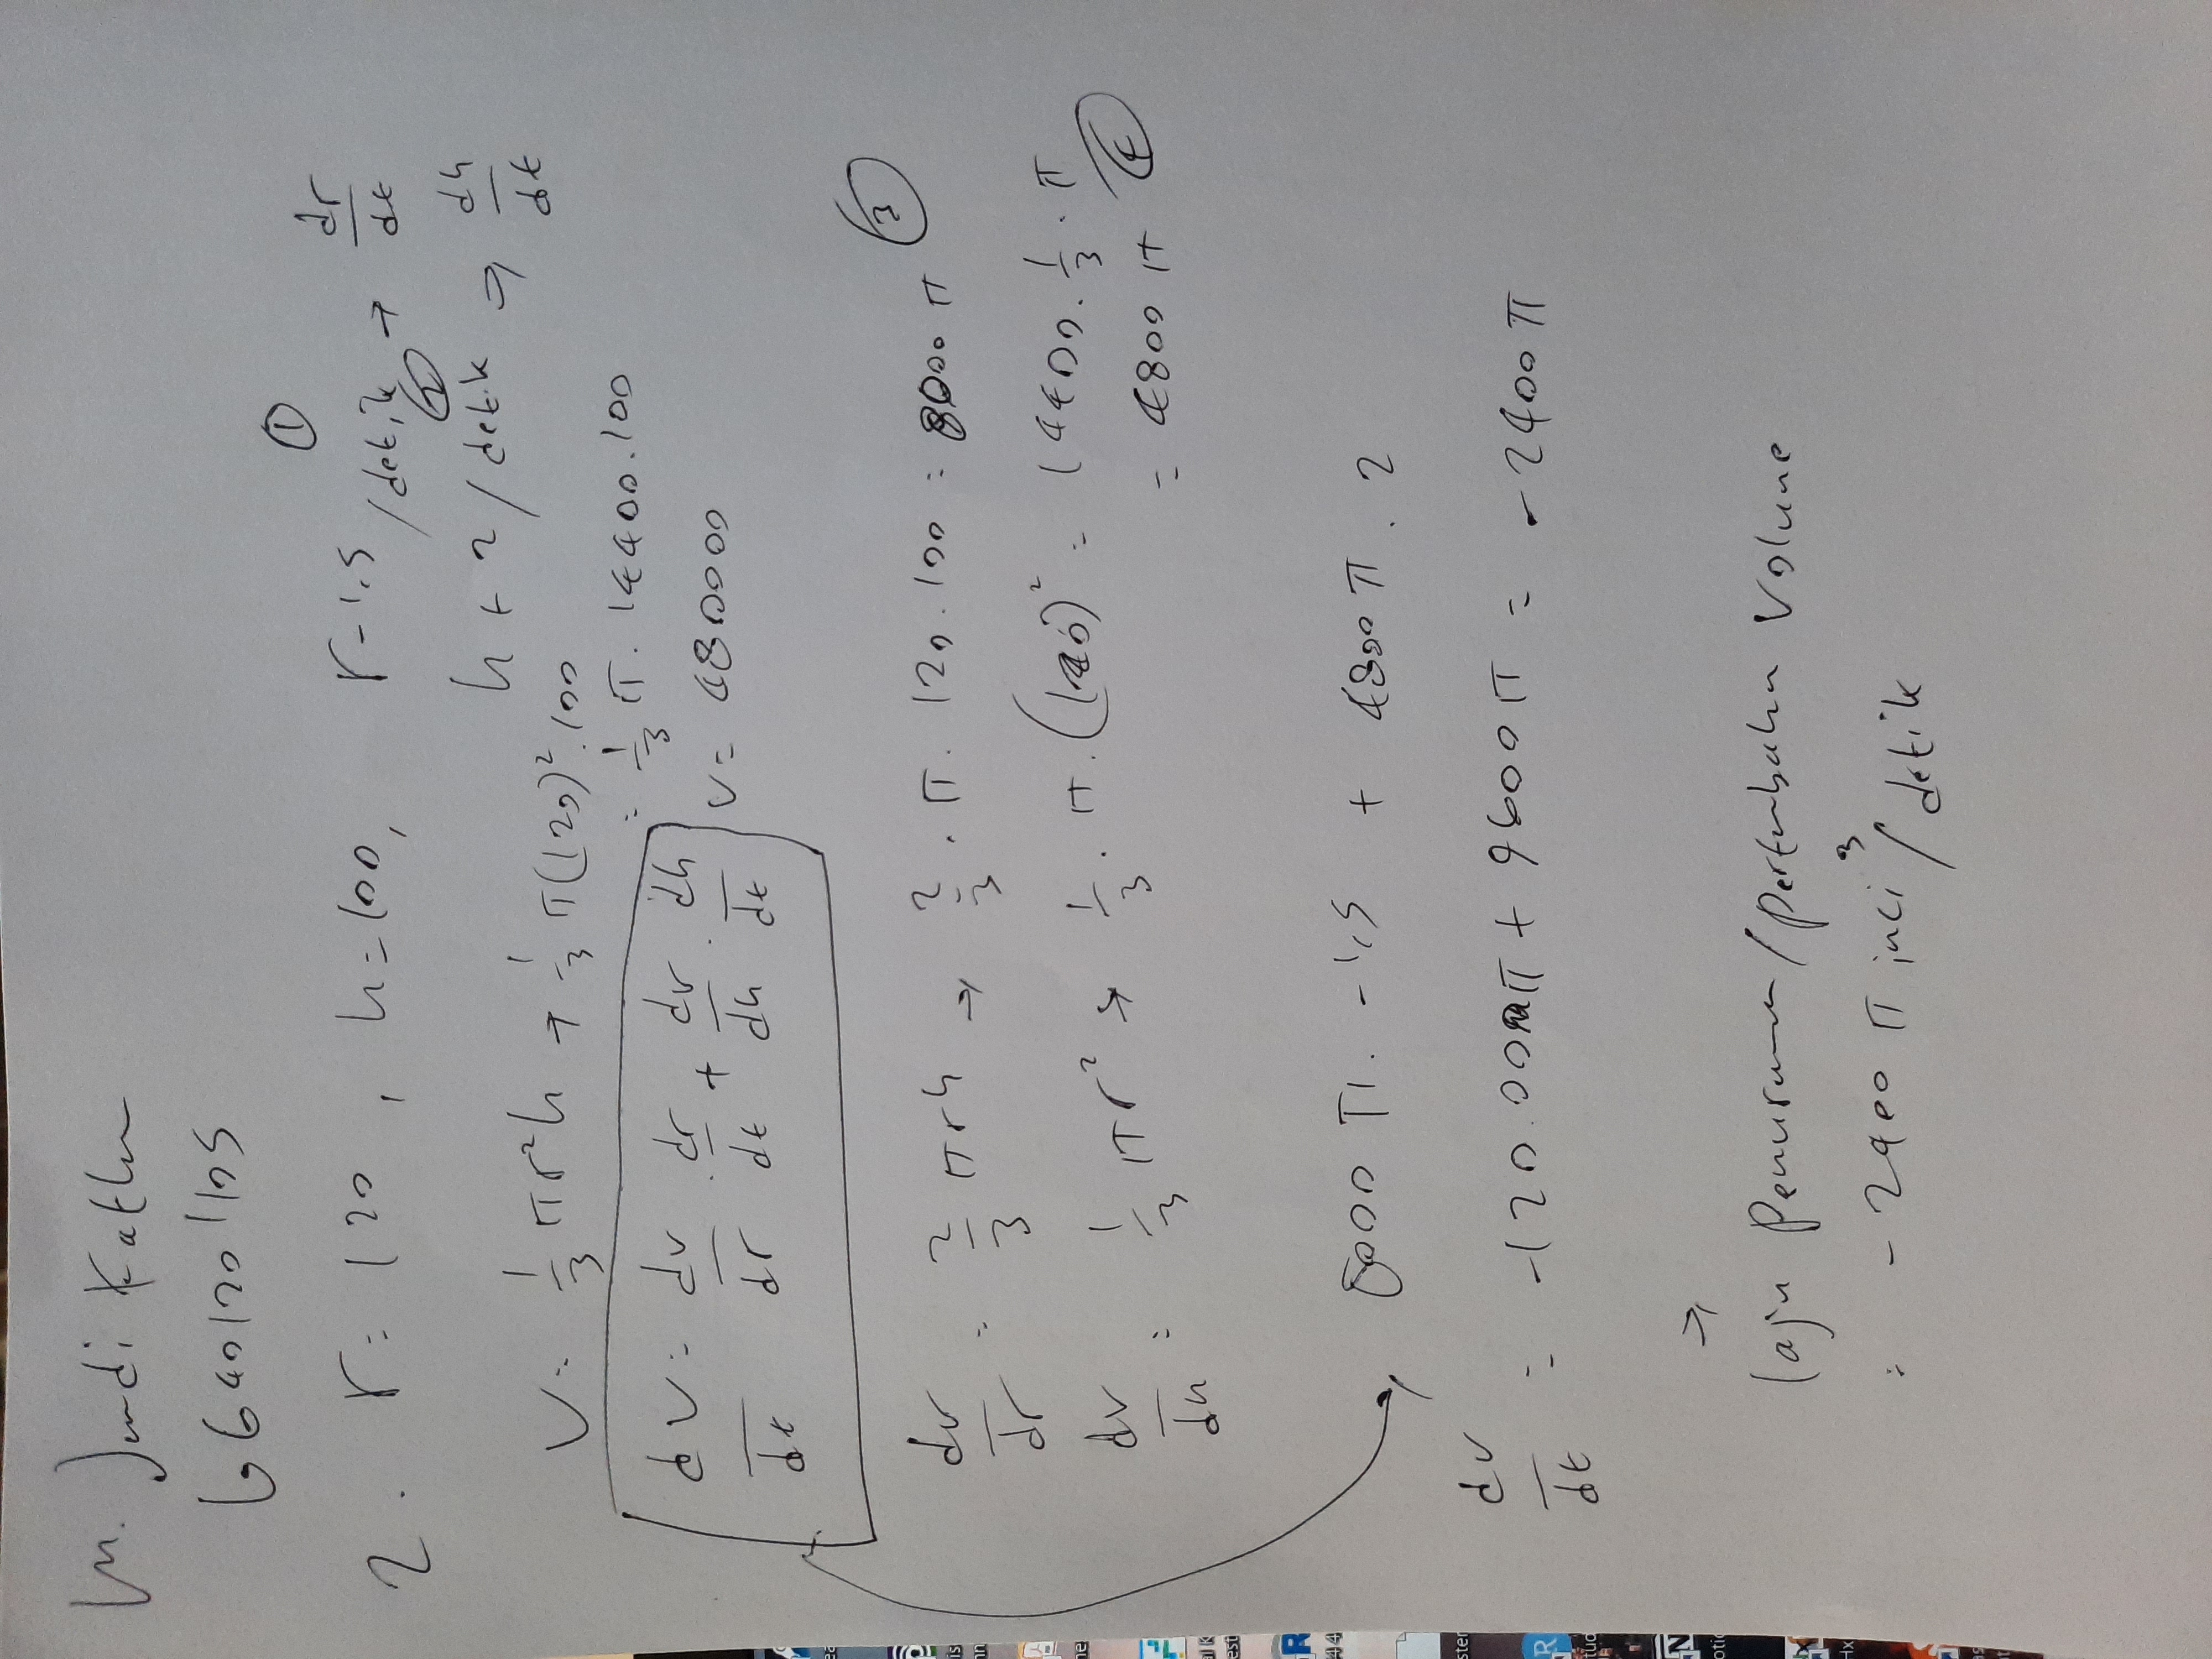 M. Jundi
66401201105
2. r = 120 , h = 100, r - 1,5 /detik → dr/dt ①
h + 2 / detik → dh/dt ②
V = 1/3 πr²h → 1/3 π(120)² . 100
= 1/3 π . 14400 . 100
V = 480000
dV/dt = dv/dr . dr/dt + dv/dh . dh/dt
dv/dr = 2/3 πrh → 2/3 . π . 120 . 100 = 8000 π ③
dv/dh = 1/3 πr² → 1/3 . π . (120)² = 14400 . 1/3 . π
= 4800 π ④
8000 π . -1,5 + 4800 π . 2
dv/dt = -120.000π + 9600 π = -2400 π
→
laju Penurunan / pertumbuhan Volume
= - 2400 π inci³ / detik